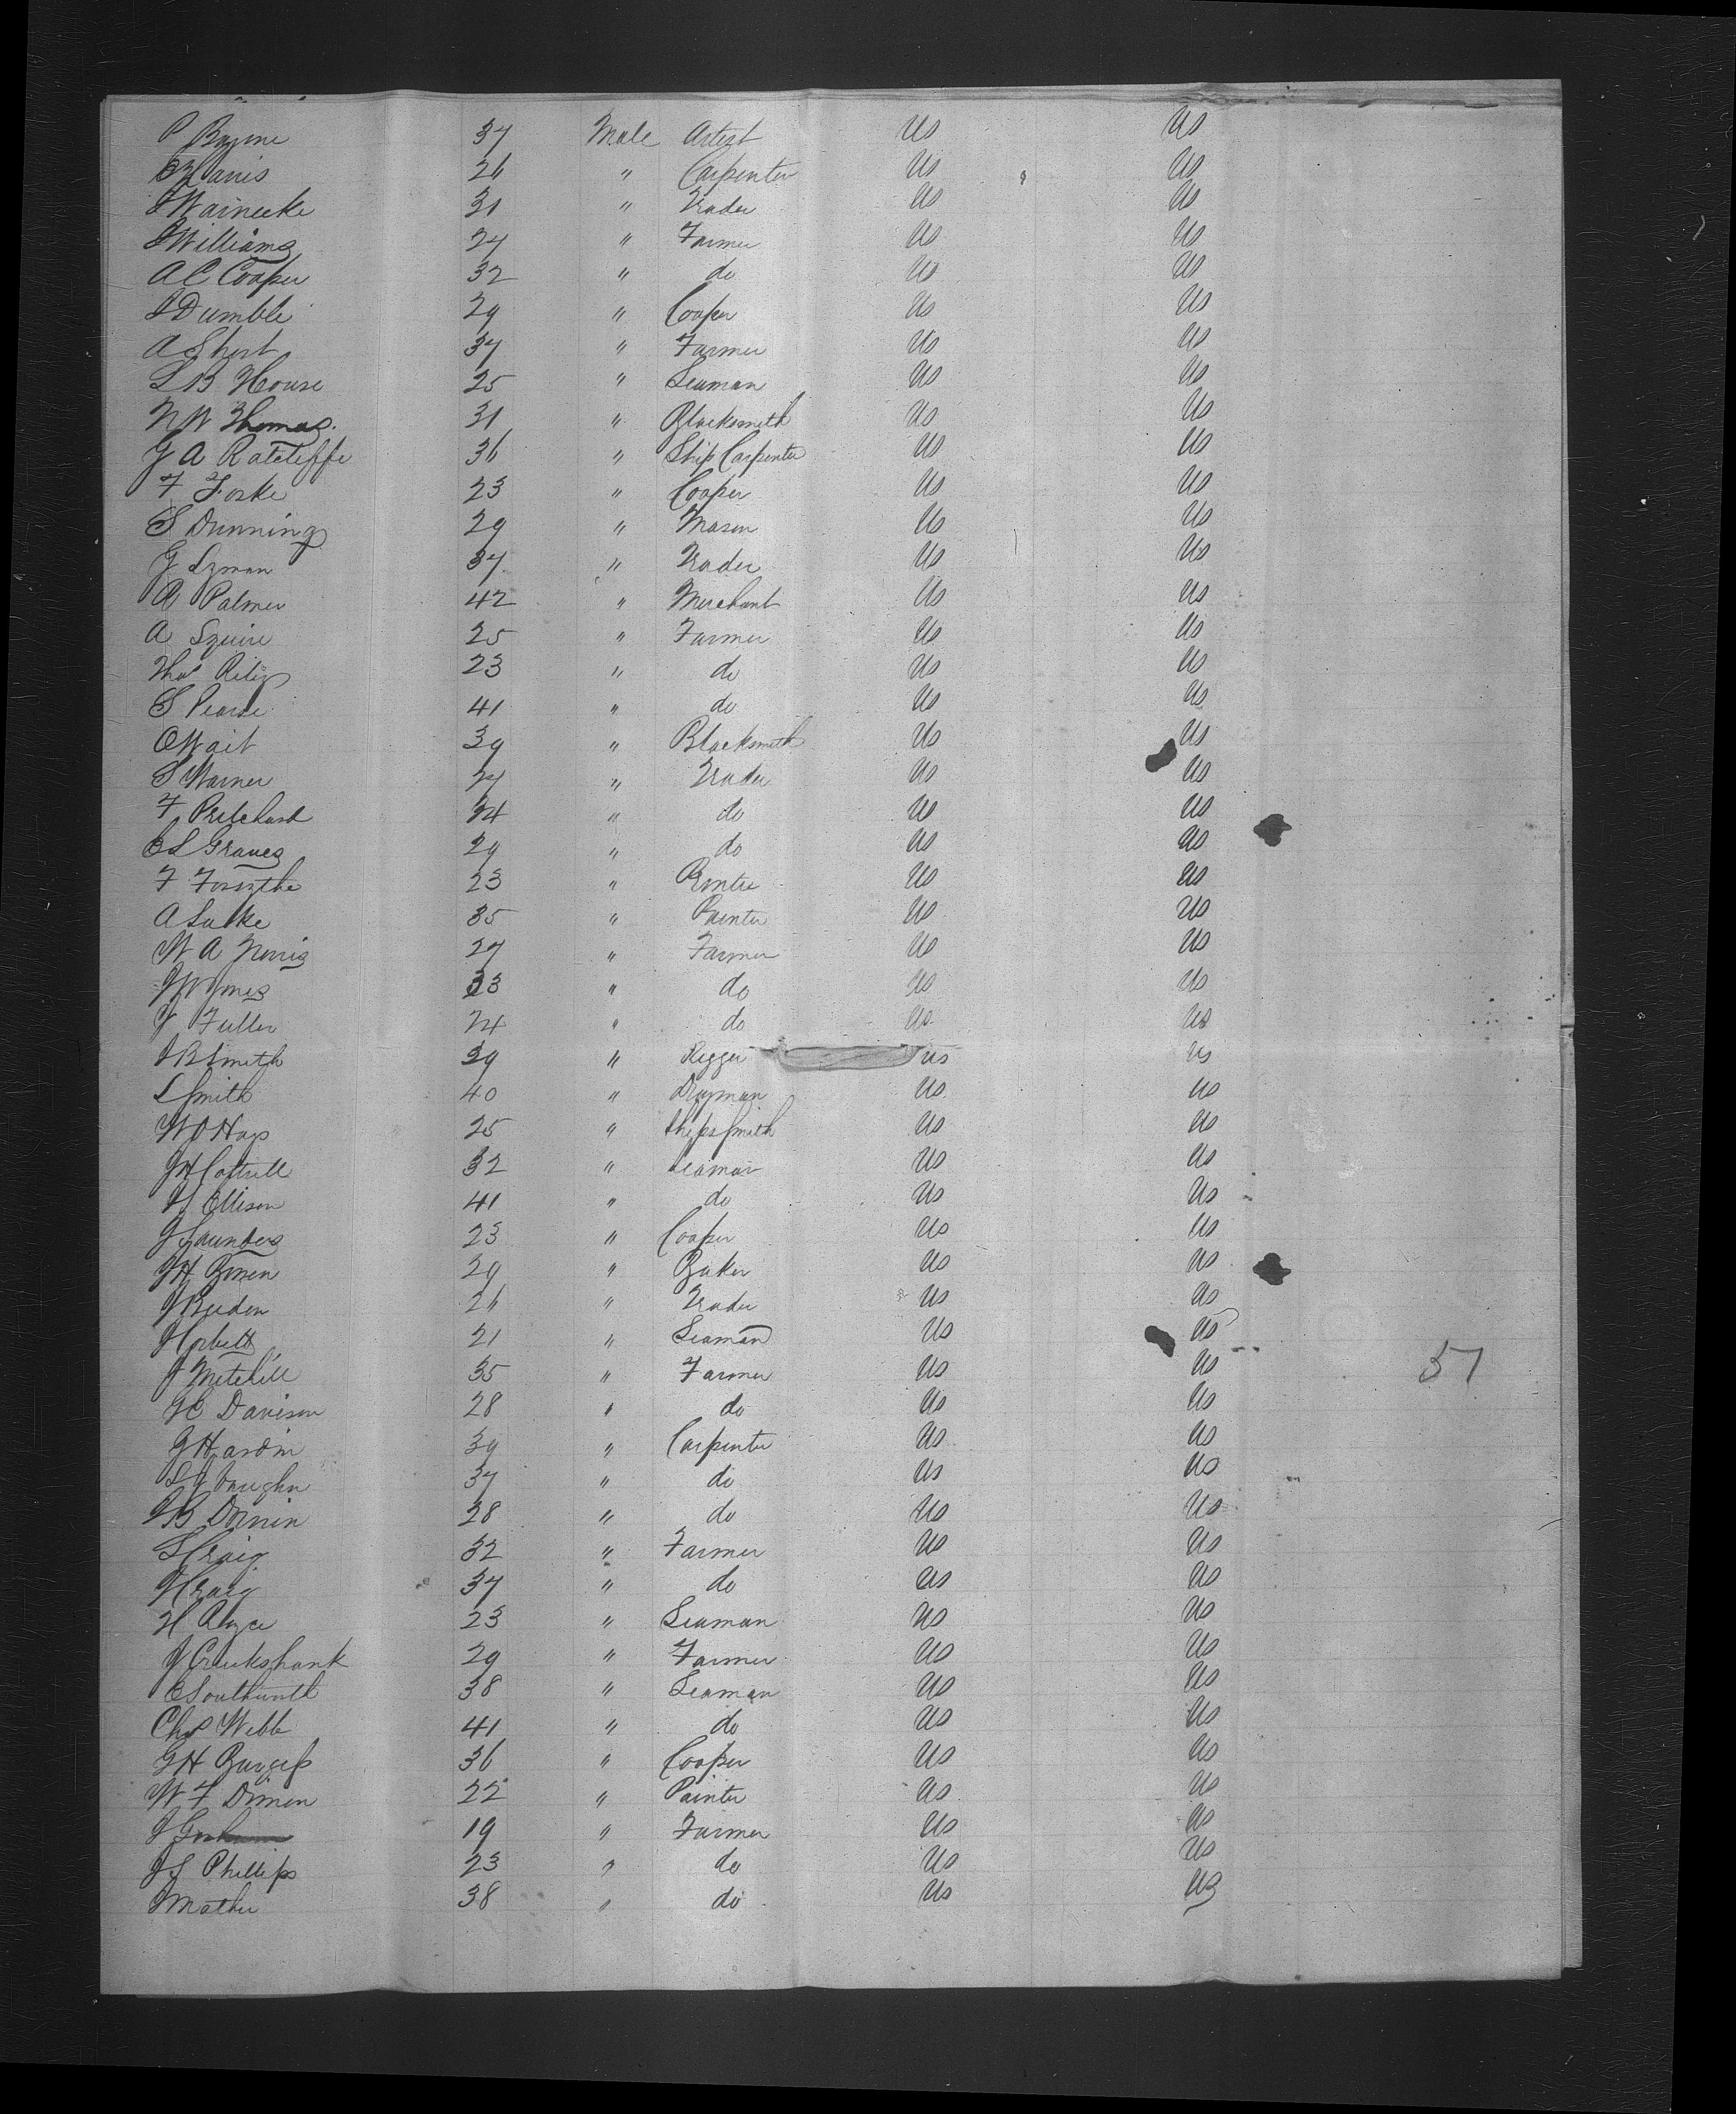 P Bayme 37 Male Artist US US
Davis 26 " Carpenter US US
J Wainecke 31 " Trader US US
J Williams 27 " Farmer US US
A C Cooper 32 " do US US
J Dumble 29 " Cooper US US
A Short 37 " Farmer US US
L B House 25 " Seaman US US
N W Thomas 31 " Blacksmith US US
J A Ratcliffe 36 " Ship Carpenter US US
F Foske 23 " Cooper US US
S Dunning 29 " Mason US US
J Lyman 37 " Trader US US
R Palmer 42 " Merchant US US
A Squire 25 " Farmer US US
Thos Riley 23 " do US US
S Pearse 41 " do US US
O Wait 39 " Blacksmith US US
S Warner 27 " Trader US US
F Pritchard 34 " do US US
C L Graves 29 " do US US
F Forsythe 23 " US US
A Luake 35 " Painter US US
W A Norris 27 " Farmer US US
33 " do US US
J Fuller 24 " do US US
J B Smith 39 " Rigger US US
L Smith 40 " Drayman US US
W O Hays 25 " Ship Smith US US
J H Cottrell 32 " Seaman US US
H Ellison 41 " do US US
J Saunders 23 " Cooper US US
J H Bowen 29 " Baker US US
J Breden 26 " Trader US US
21 " Seaman US US
J Mitchell 35 " Farmer US US 57
J C Davison 28 " do US US
G Hardin 39 " Carpenter US US
L J Vaughn 37 " do US US
J B Dornin 28 " do US US
S Craig 32 " Farmer US US
J Craig 37 " do US US
H Alyce 23 " Seaman US US
J Cruikshank 29 " Farmer US US
E Southworth 38 " Seaman US US
Chs Webb 41 " do US US
G H Burgess 36 " Cooper US US
W F Dimon 22 " Painter US US
J Gorham 19 " Farmer US US
J S Phillips 23 " do US US
J Mather 38 " do US US